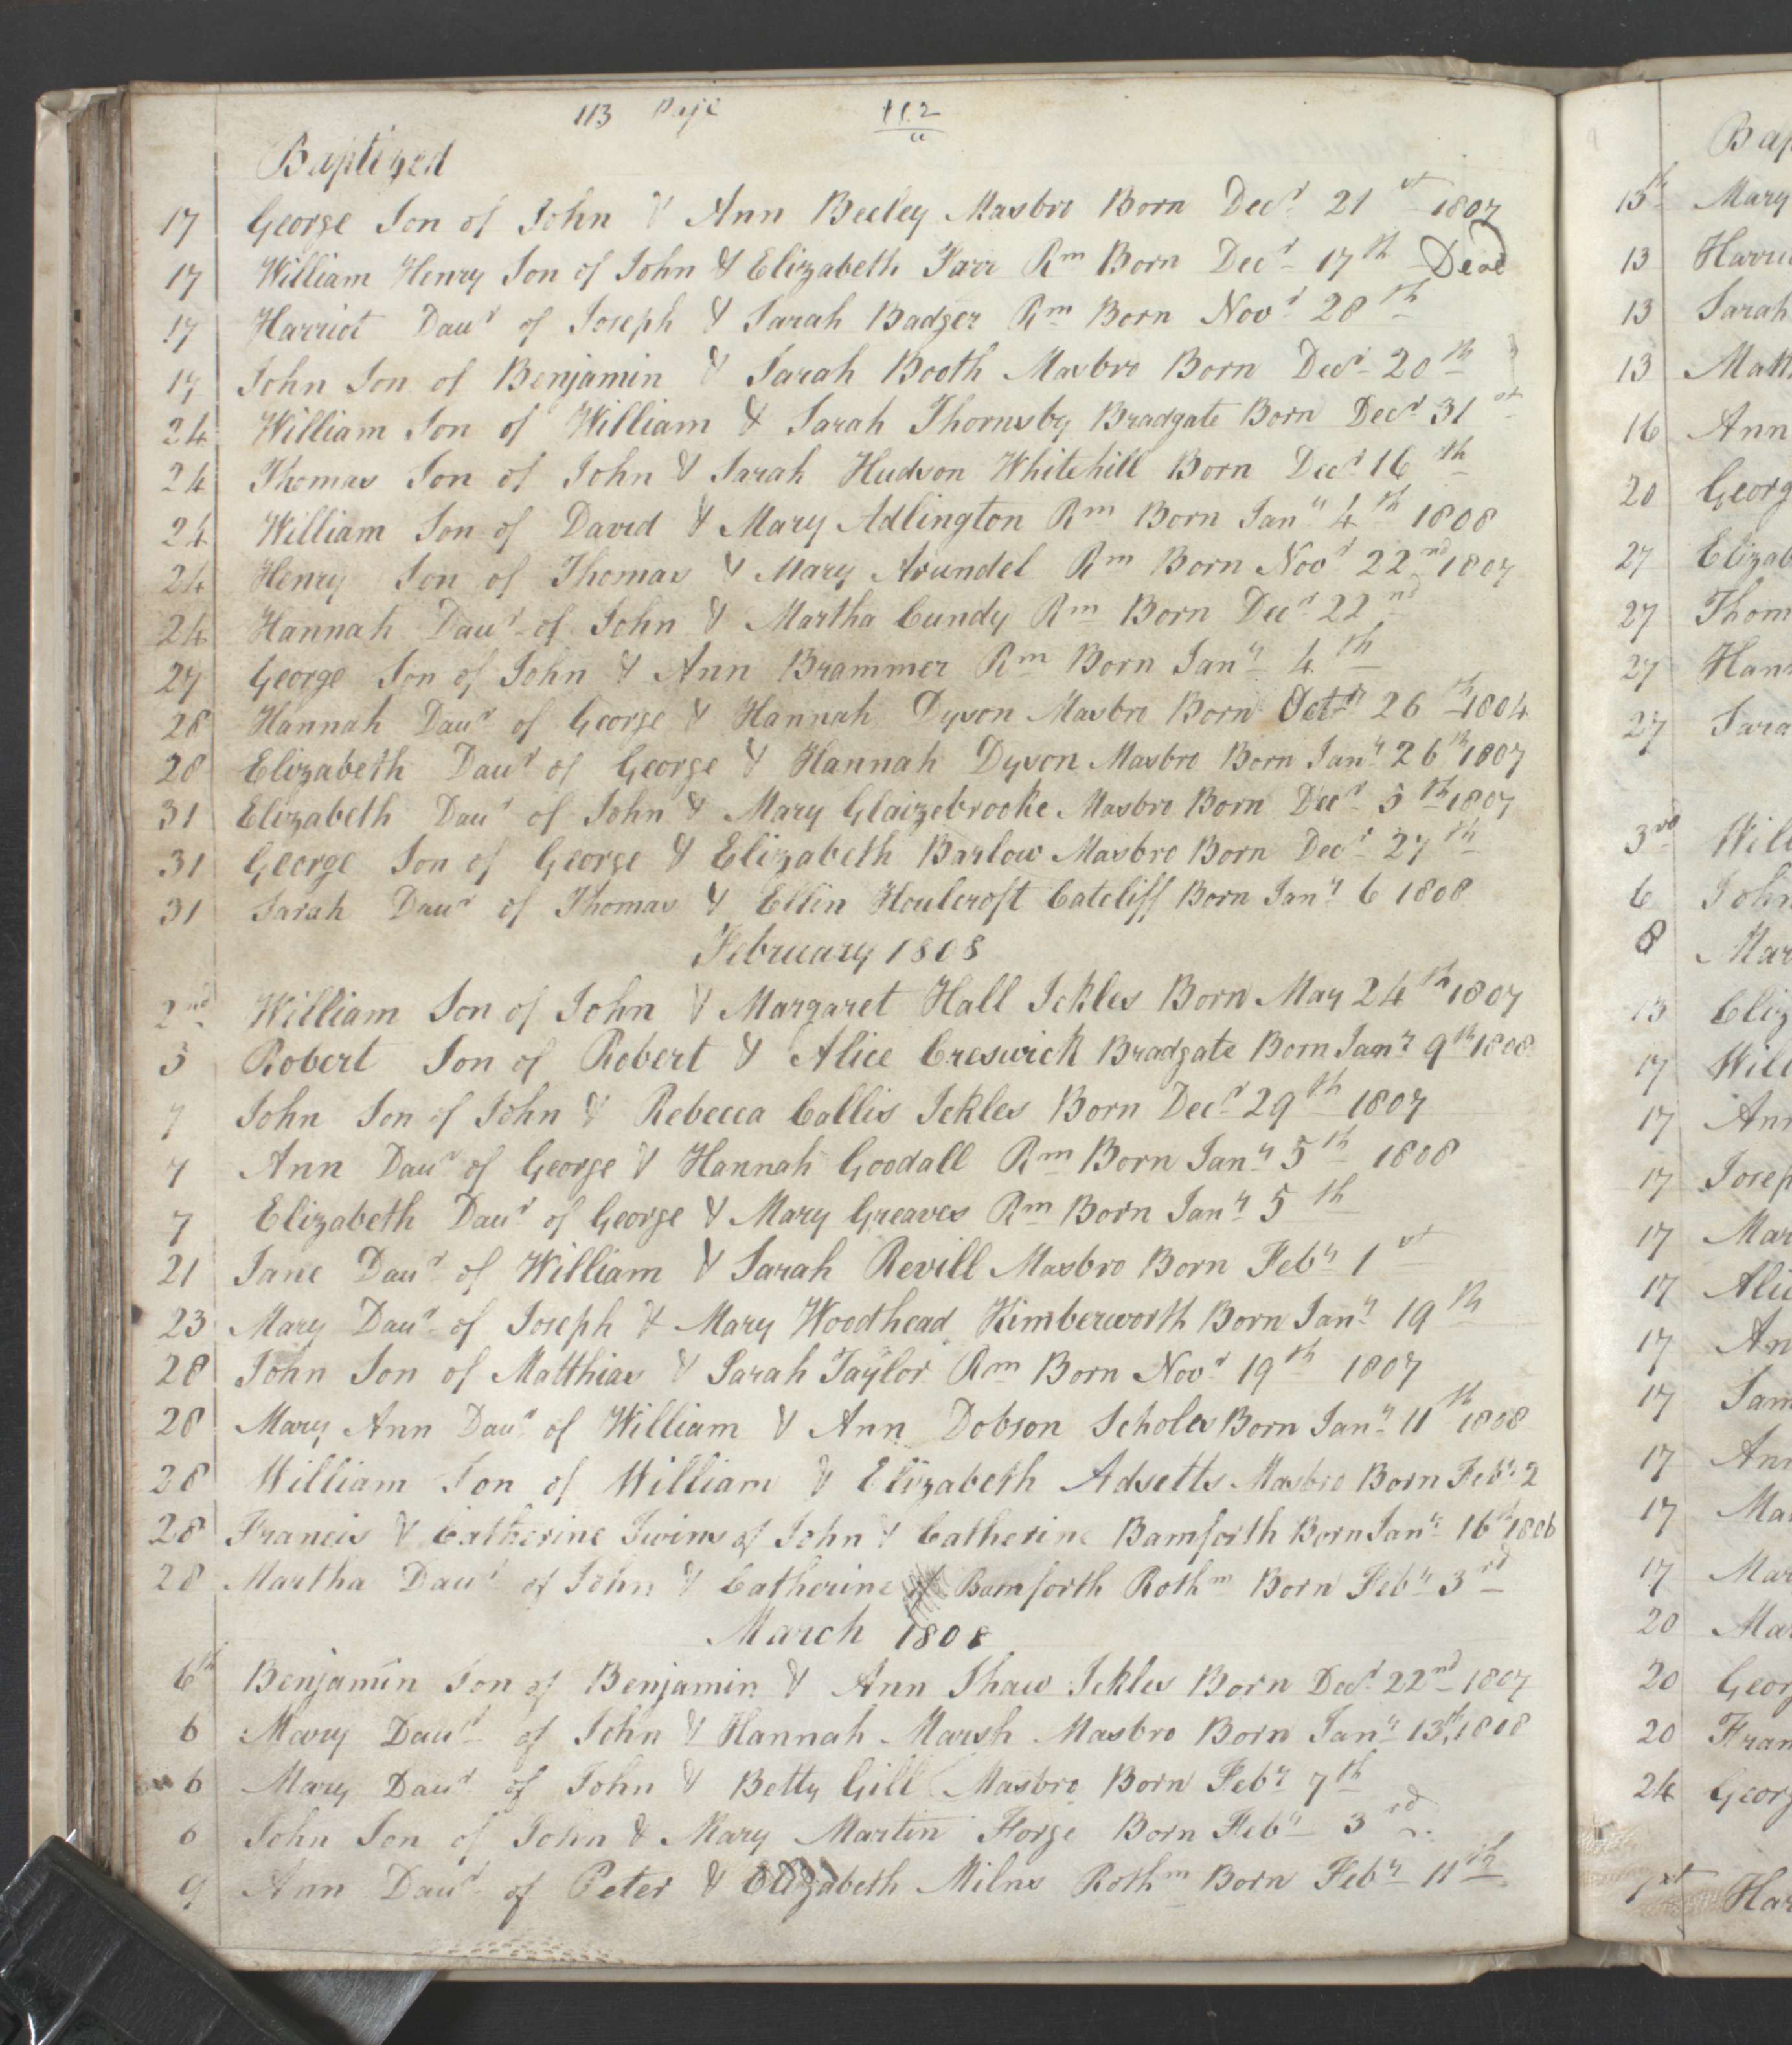 113 Page 112
Baptized
17 George Son of John & Ann Beeley Masbro Born Decr 21st 1807
17 William Henry Son of John & Elizabeth Farr Rm Born Decr 17th Dead
17 Harriot Daur of Joseph & Sarah Badger Rm Born Novr 28th
17 John Son of Benjamin & Sarah Booth Masbro Born Decr 20th
24 William Son of William & Sarah Thornsby Bradgate Born Decr 31st
24 Thomas Son of John & Sarah Hudson Whitehill Born Decr 16th
24 William Son of David & Mary Adlington Rm Born Jany 4th 1808
24 Henry Son of Thomas & Mary Arundel Rm Born Novr 22nd 1807
24 Hannah Daur of John & Martha Cundy Rm Born Decr 22nd
27 George Son of John & Ann Brammer Rm Born Jany 4th
28 Hannah Daur of George & Hannah Dyson Masbro Born Octr 26th 1804
28 Elizabeth Daur of George & Hannah Dyson Masbro Born Jany 26th 1807
31 Elizabeth Daur of John & Mary Glaizebrooke Masbro Born Decr 5th 1807
31 George Son of George & Elizabeth Barlow Masbro Born Decr 27th
31 Sarah Daur of Thomas & Ellin Houlcroft Catcliff Born Jany 6 1808
February 1808
2nd William Son of John & Margaret Hall Ickles Born May 24th 1807
5 Robert Son of Robert & Alice Creswick Bradgate Born Jany 9th 1808
7 John Son of John & Rebecca Callis Ickles Born Decr 29th 1807
7 Ann Daur of George & Hannah Goodall Rm Born Jany 5th 1808
7 Elizabeth Daur of George & Mary Greaves Rm Born Jany 5th
21 Jane Daur of William & Sarah Revill Masbro Born Feby 1st
23 Mary Daur of Joseph & Mary Woodhead Kimberworth Born Jany 19th
28 John Son of Matthias & Sarah Taylor Rm Born Novr 19th 1807
28 Mary Ann Daur of William & Ann Dobson Scholes Born Jany 11th 1808
28 William Son of William & Elizabeth Adsetts Masbro Born Feby 2
28 Francis & Catherine Twins of John & Catherine Bamforth Born Jany 16th 1806
28 Martha Daur of John & Catherine Bamforth Rothm Born Feby 3rd
March 1808
6th Benjamin Son of Benjamin & Ann Shaw Ickles Born Decr 22nd 1807
6 Mary Daur of John & Hannah Marsh Masbro Born Jany 13th 1808
6 Mary Daur of John & Betty Gill Masbro Born Feby 7th
6 John Son of John & Mary Martin Forge Born Feby 3rd
9 Ann Daur of Peter & Elizabeth Milns Rothm Born Feby 11th
Bap
13th Mary
13 Harri
13 Sarah
13 Matt
16 Ann
20 Georg
27 Elizab
27 Thom
27 Hann
27 Sara
3rd Will
6 John
8 Mar
13 Eliz
17 Will
17 Ann
17 Josep
17 Mar
17 Alic
17 An
17 Sam
17 Ann
17 Mar
17 Mar
20 Mar
20 Geor
20 Fran
24 Georg
1st Har